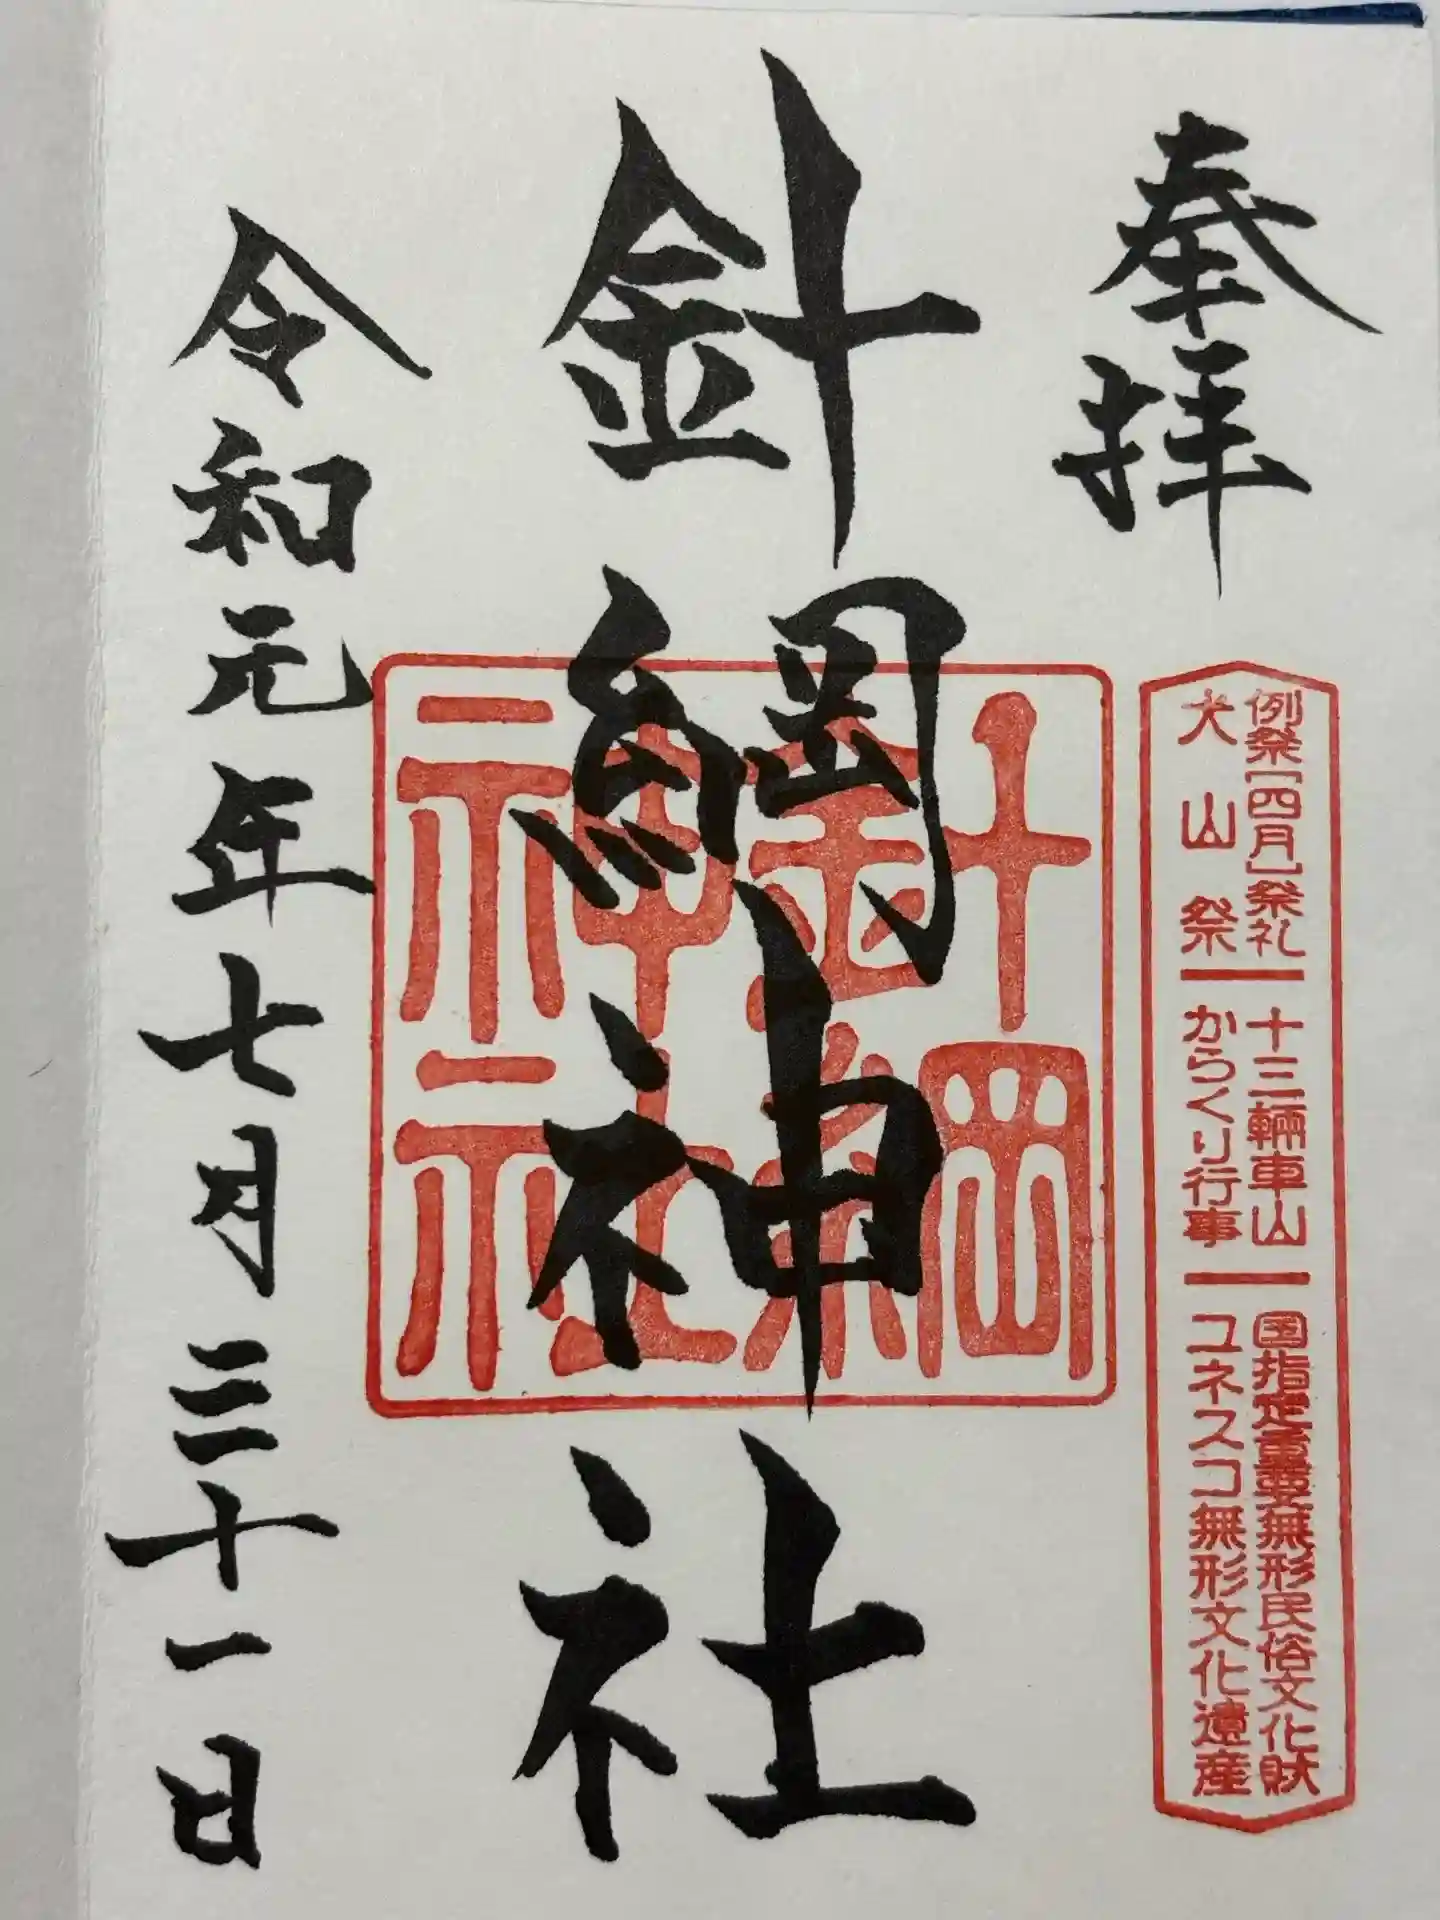 奉拝
例祭[四月]祭礼 十三輛車山 国指定重要無形民俗文化財
犬山祭 からくり行事 ユネスコ無形文化遺産
針綱神社
針綱神社
令和元年七月三十一日